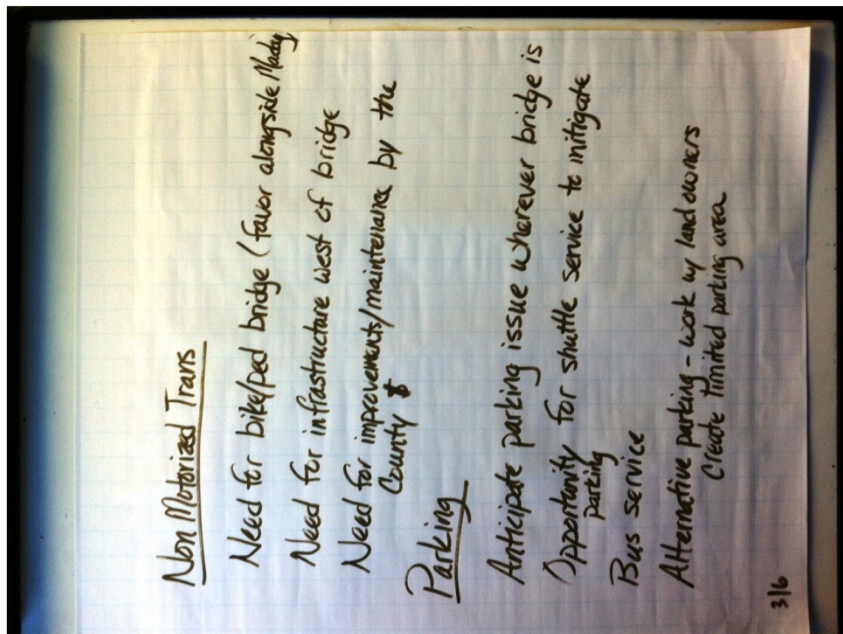 Non Motorized Trans
Need for bike/ped bridge (favor alongside
Need for infrastructure west of bridge
Need for improvements/maintenance by the
County $
Parking
Anticipate parking issue wherever bridge is
Opportunity for shuttle service to mitigate
parking
Bus service
Alternative parking - work w/ land owners
Create limited parking area
3/6